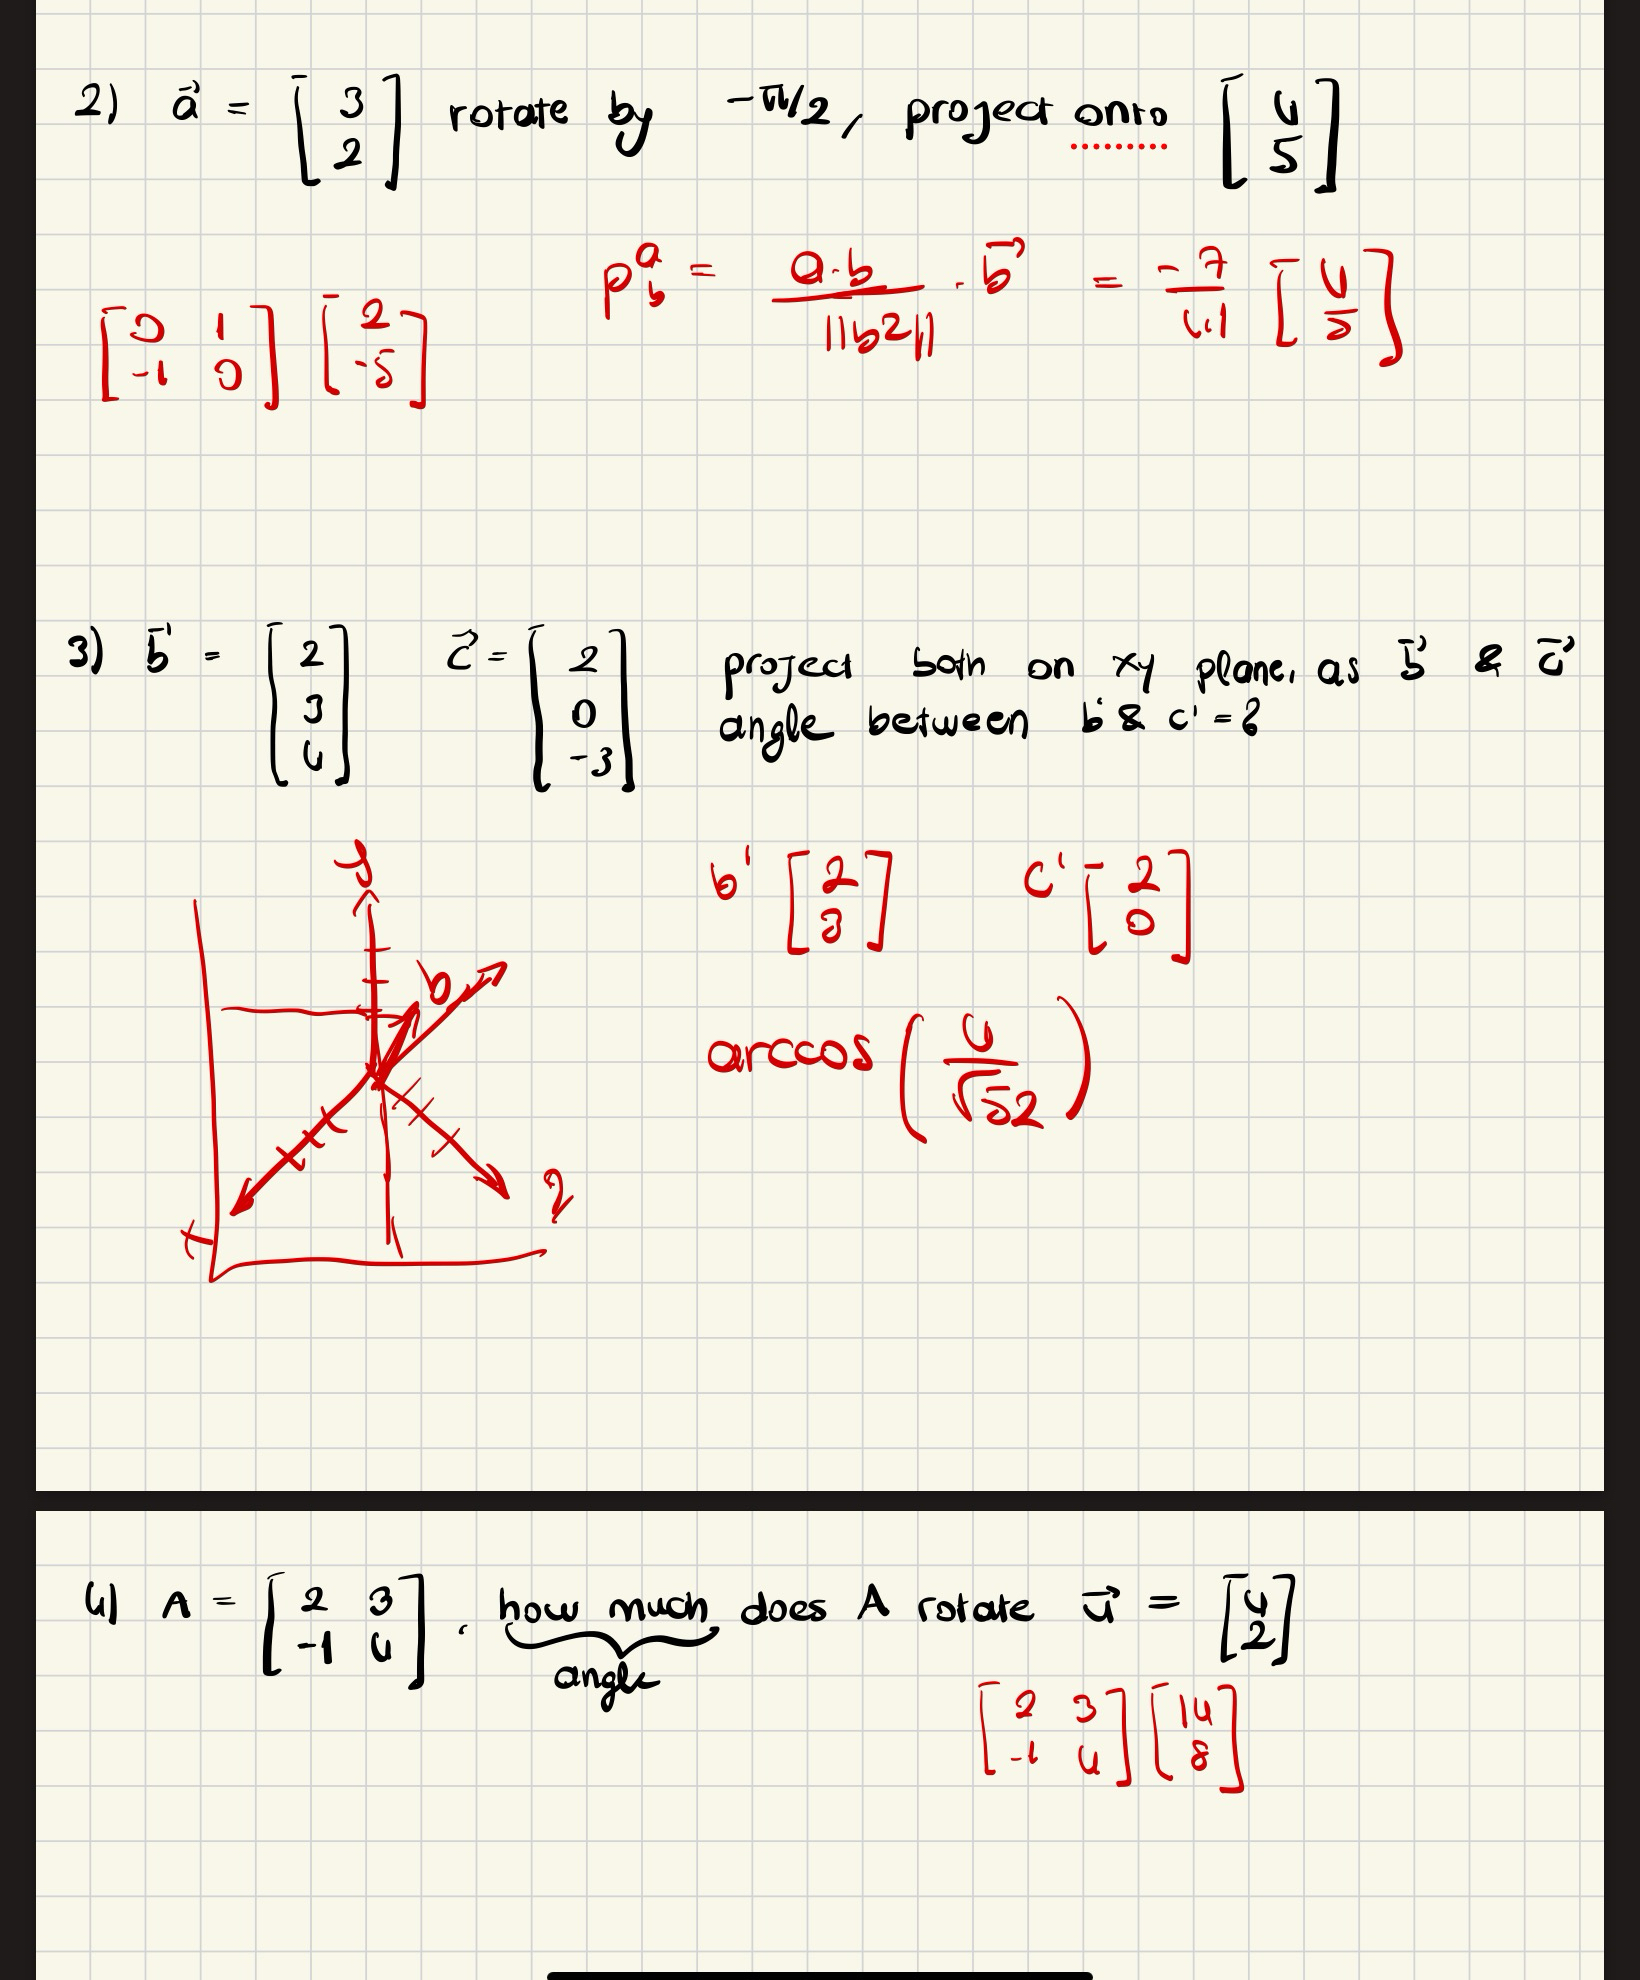 2) a⃗ = [3 2] rotate by -π/2, project onto [4 5]
p^a_b = a.b/||b2|| . b⃗ = -7/41 [4 5]
[0 1 -1 0] [2 -5]
3) b⃗ = [2 3 4] c⃗ = [2 0 -3] project both on xy plane, as b⃗' & c⃗'
angle between b' & c' = ?
b' [2 3] c' [2 0]
b
arccos (4/√52)
4) A = [2 3 -1 4] . how much does A rotate u⃗ = [4 2]
angle
[2 3 -1 4] [14 8]